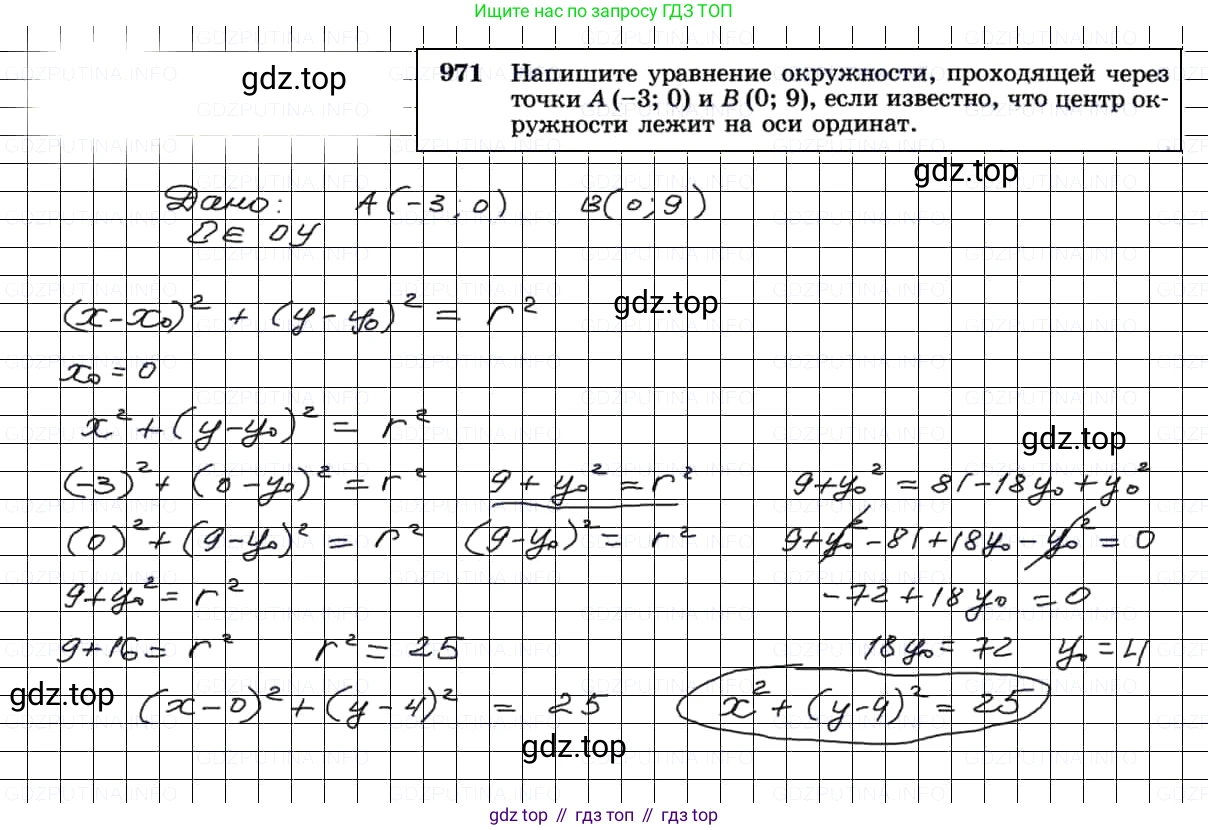 Ищите нас по запросу ГДЗ ТОП
gdz.top
971 Напишите уравнение окружности, проходящей через
точки A (−3; 0) и B (0; 9), если известно, что центр ок-
ружности лежит на оси ординат.
gdz.top
Дано: A(-3; 0) B(0; 9)
O ∈ OY
(x-x₀)² + (y-y₀)² = r²
gdz.top
x₀ = 0
x² + (y-y₀)² = r²
gdz.top
(-3)² + (0-y₀)² = r² 9 + y₀² = r² 9+y₀² = 81-18y₀+y₀²
(0)² + (9-y₀)² = r² (9-y₀)² = r² 9+y₀²-81+18y₀-y₀² = 0
9+y₀² = r² -72+18y₀ = 0
9+16 = r² r² = 25 18y₀ = 72 y₀ = 4
gdz.top (x-0)² + (y-4)² = 25 x² + (y-4)² = 25
gdz.top
gdz top // гдз топ // гдз top
GDZPUTINA.INFO